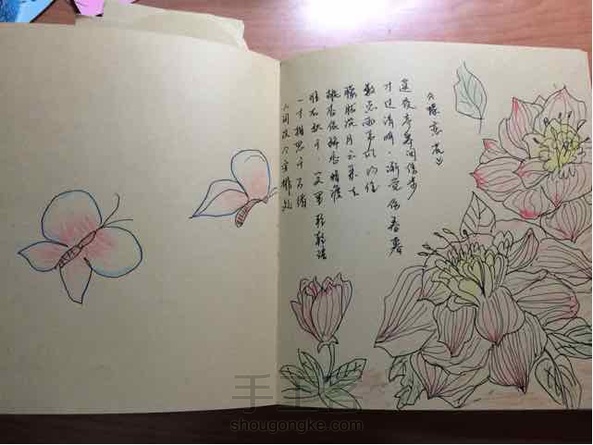 《蝶恋花》
遥夜亭皋闲信步
才过清明，渐觉伤春暮
数点雨声风约住
朦胧淡月云来去
桃杏依稀香暗度
谁在秋千，笑里轻轻语
一寸相思千万绪
人间没个安排处
手工客
shougongke.com